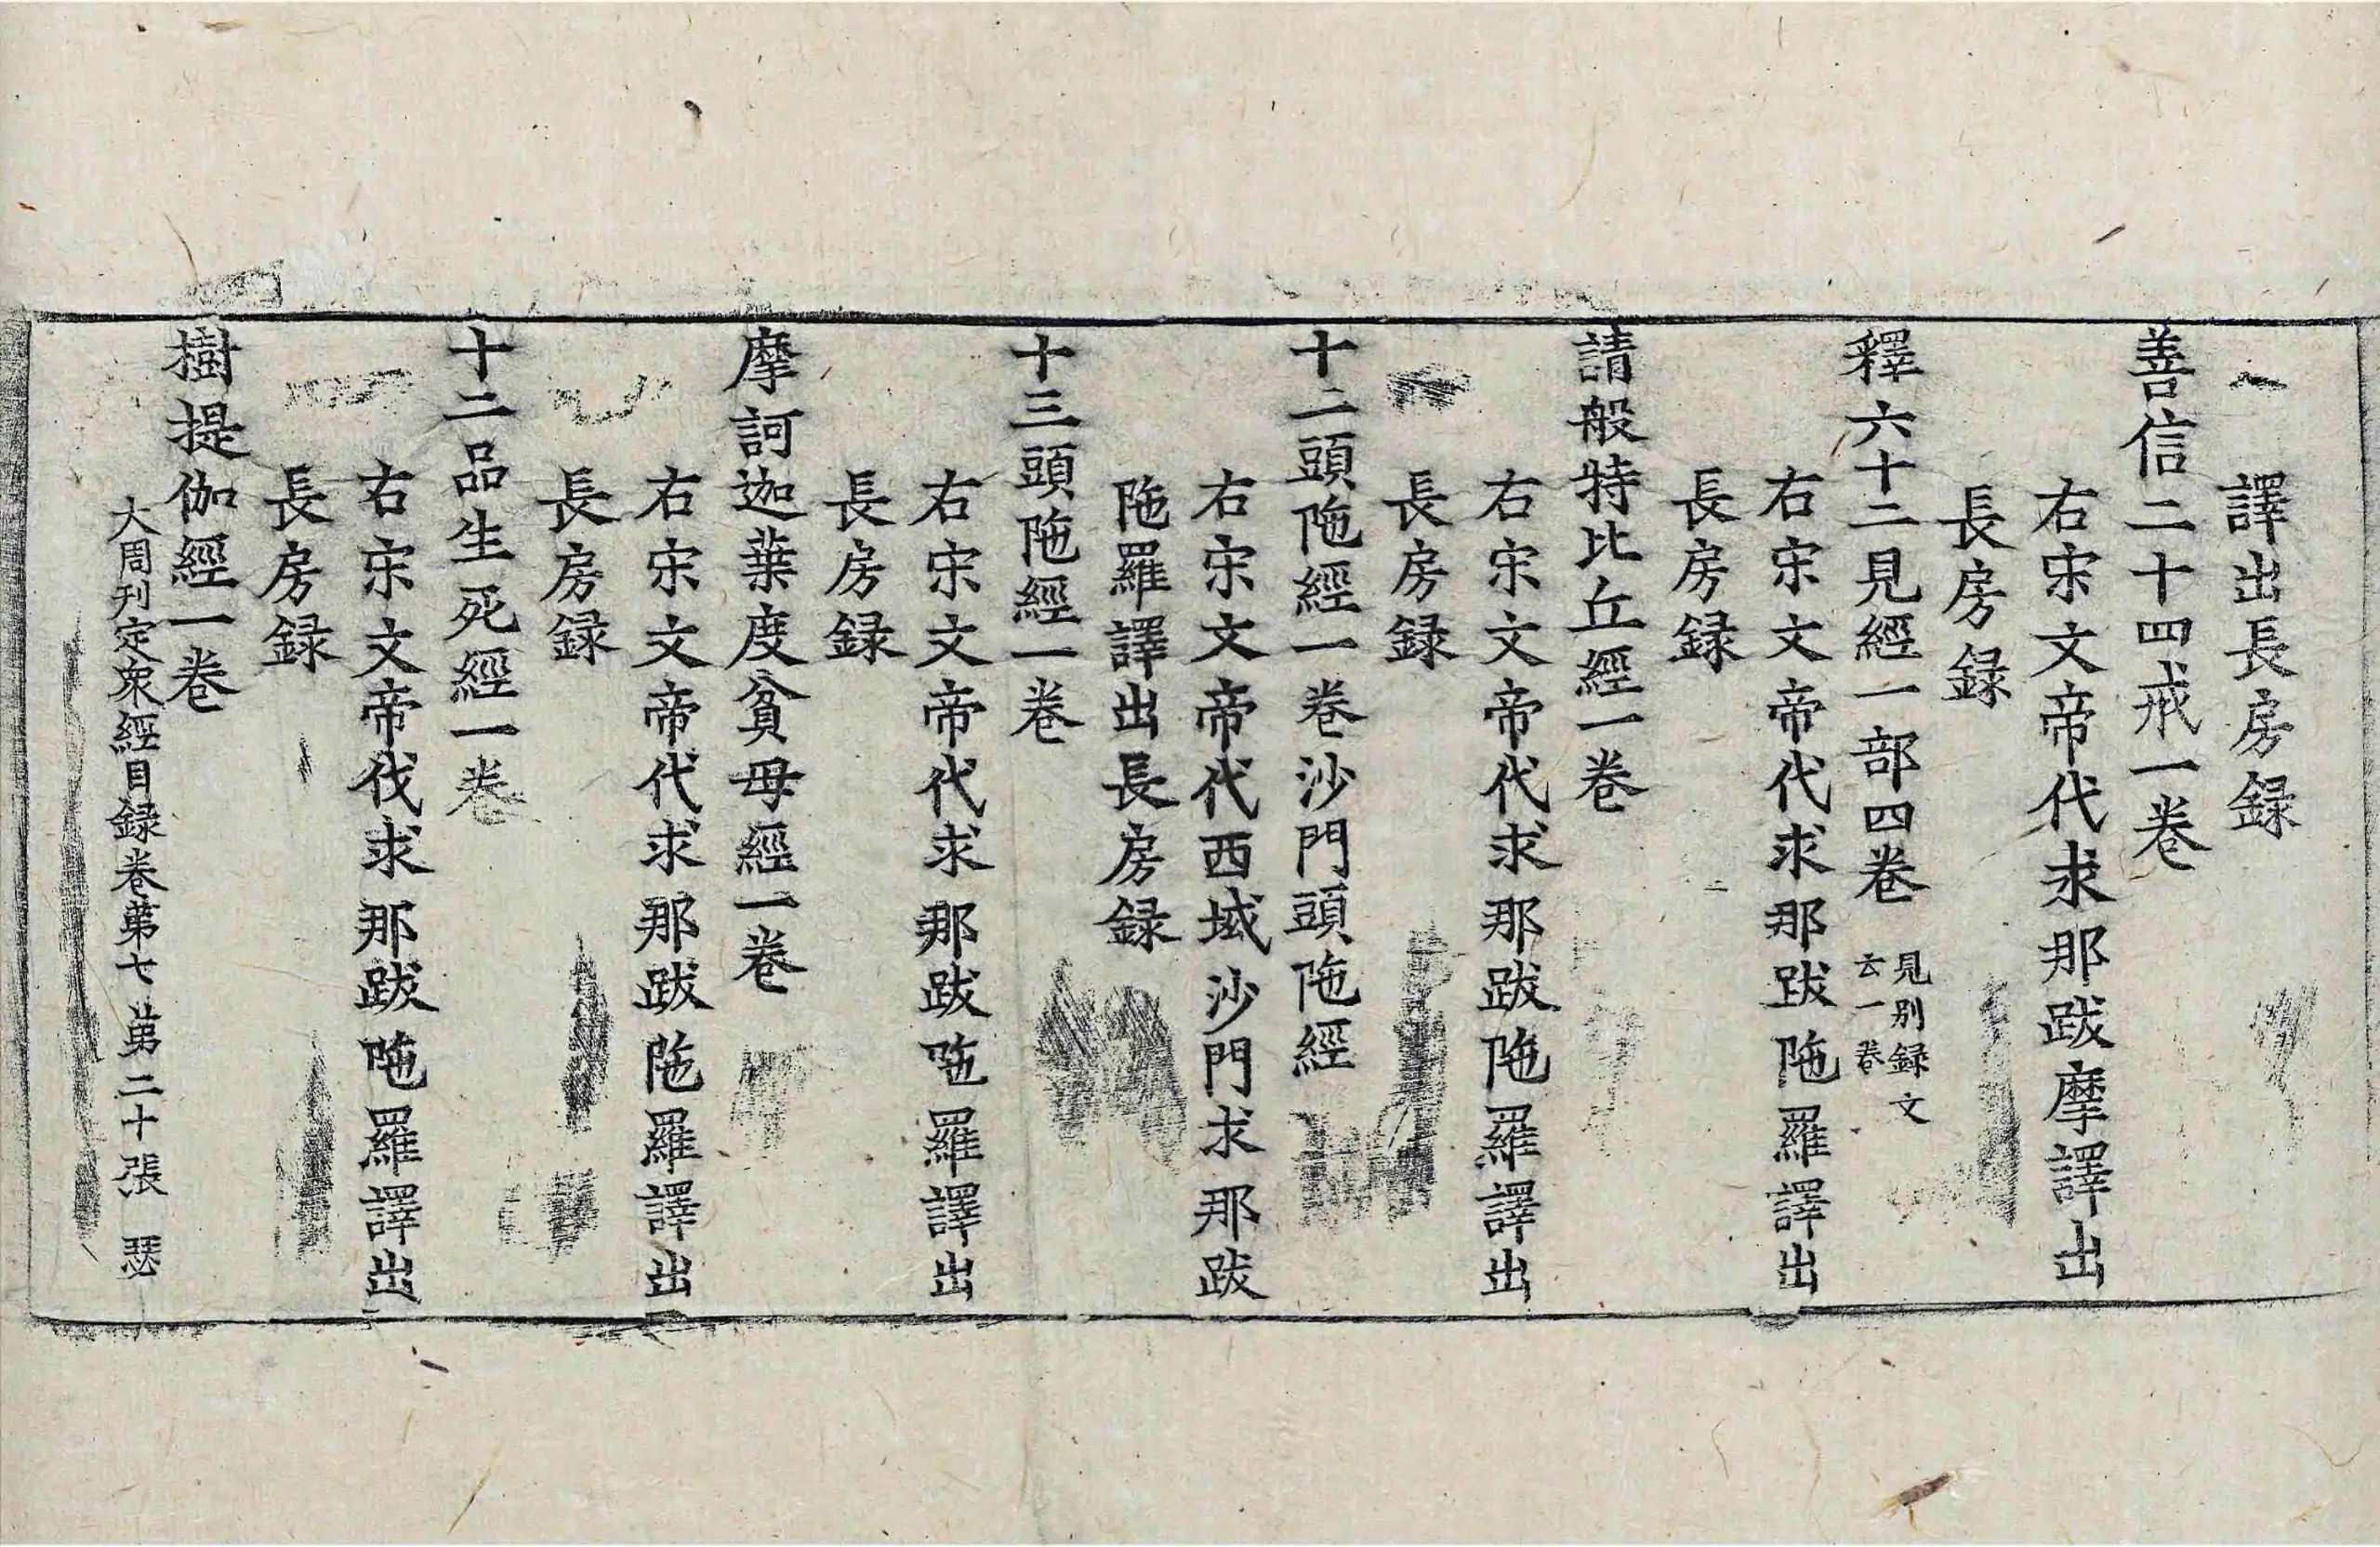 譯出長房録
善信二十四戒一卷
右宋文帝代求那跋摩譯出
長房録
釋六十二見經一部四卷 見別録文
云一卷
右宋文帝代求那跋陁羅譯出
長房録
請般特比丘經一卷
右宋文帝代求那跋陁羅譯出
長房録
十二頭陁經一卷沙門頭陁經
右宋文帝代西域沙門求那跋
陁羅譯出長房録
十三頭陁經一卷
右宋文帝代求那跋陁羅譯出
長房録
摩訶迦葉度貧母經一卷
右宋文帝代求那跋陁羅譯出
長房録
十二品生死經一卷
右宋文帝伐求那跋陁羅譯出
長房録
樹提伽經一卷
大周刊定衆經目録卷苐七 苐二十張 瑟